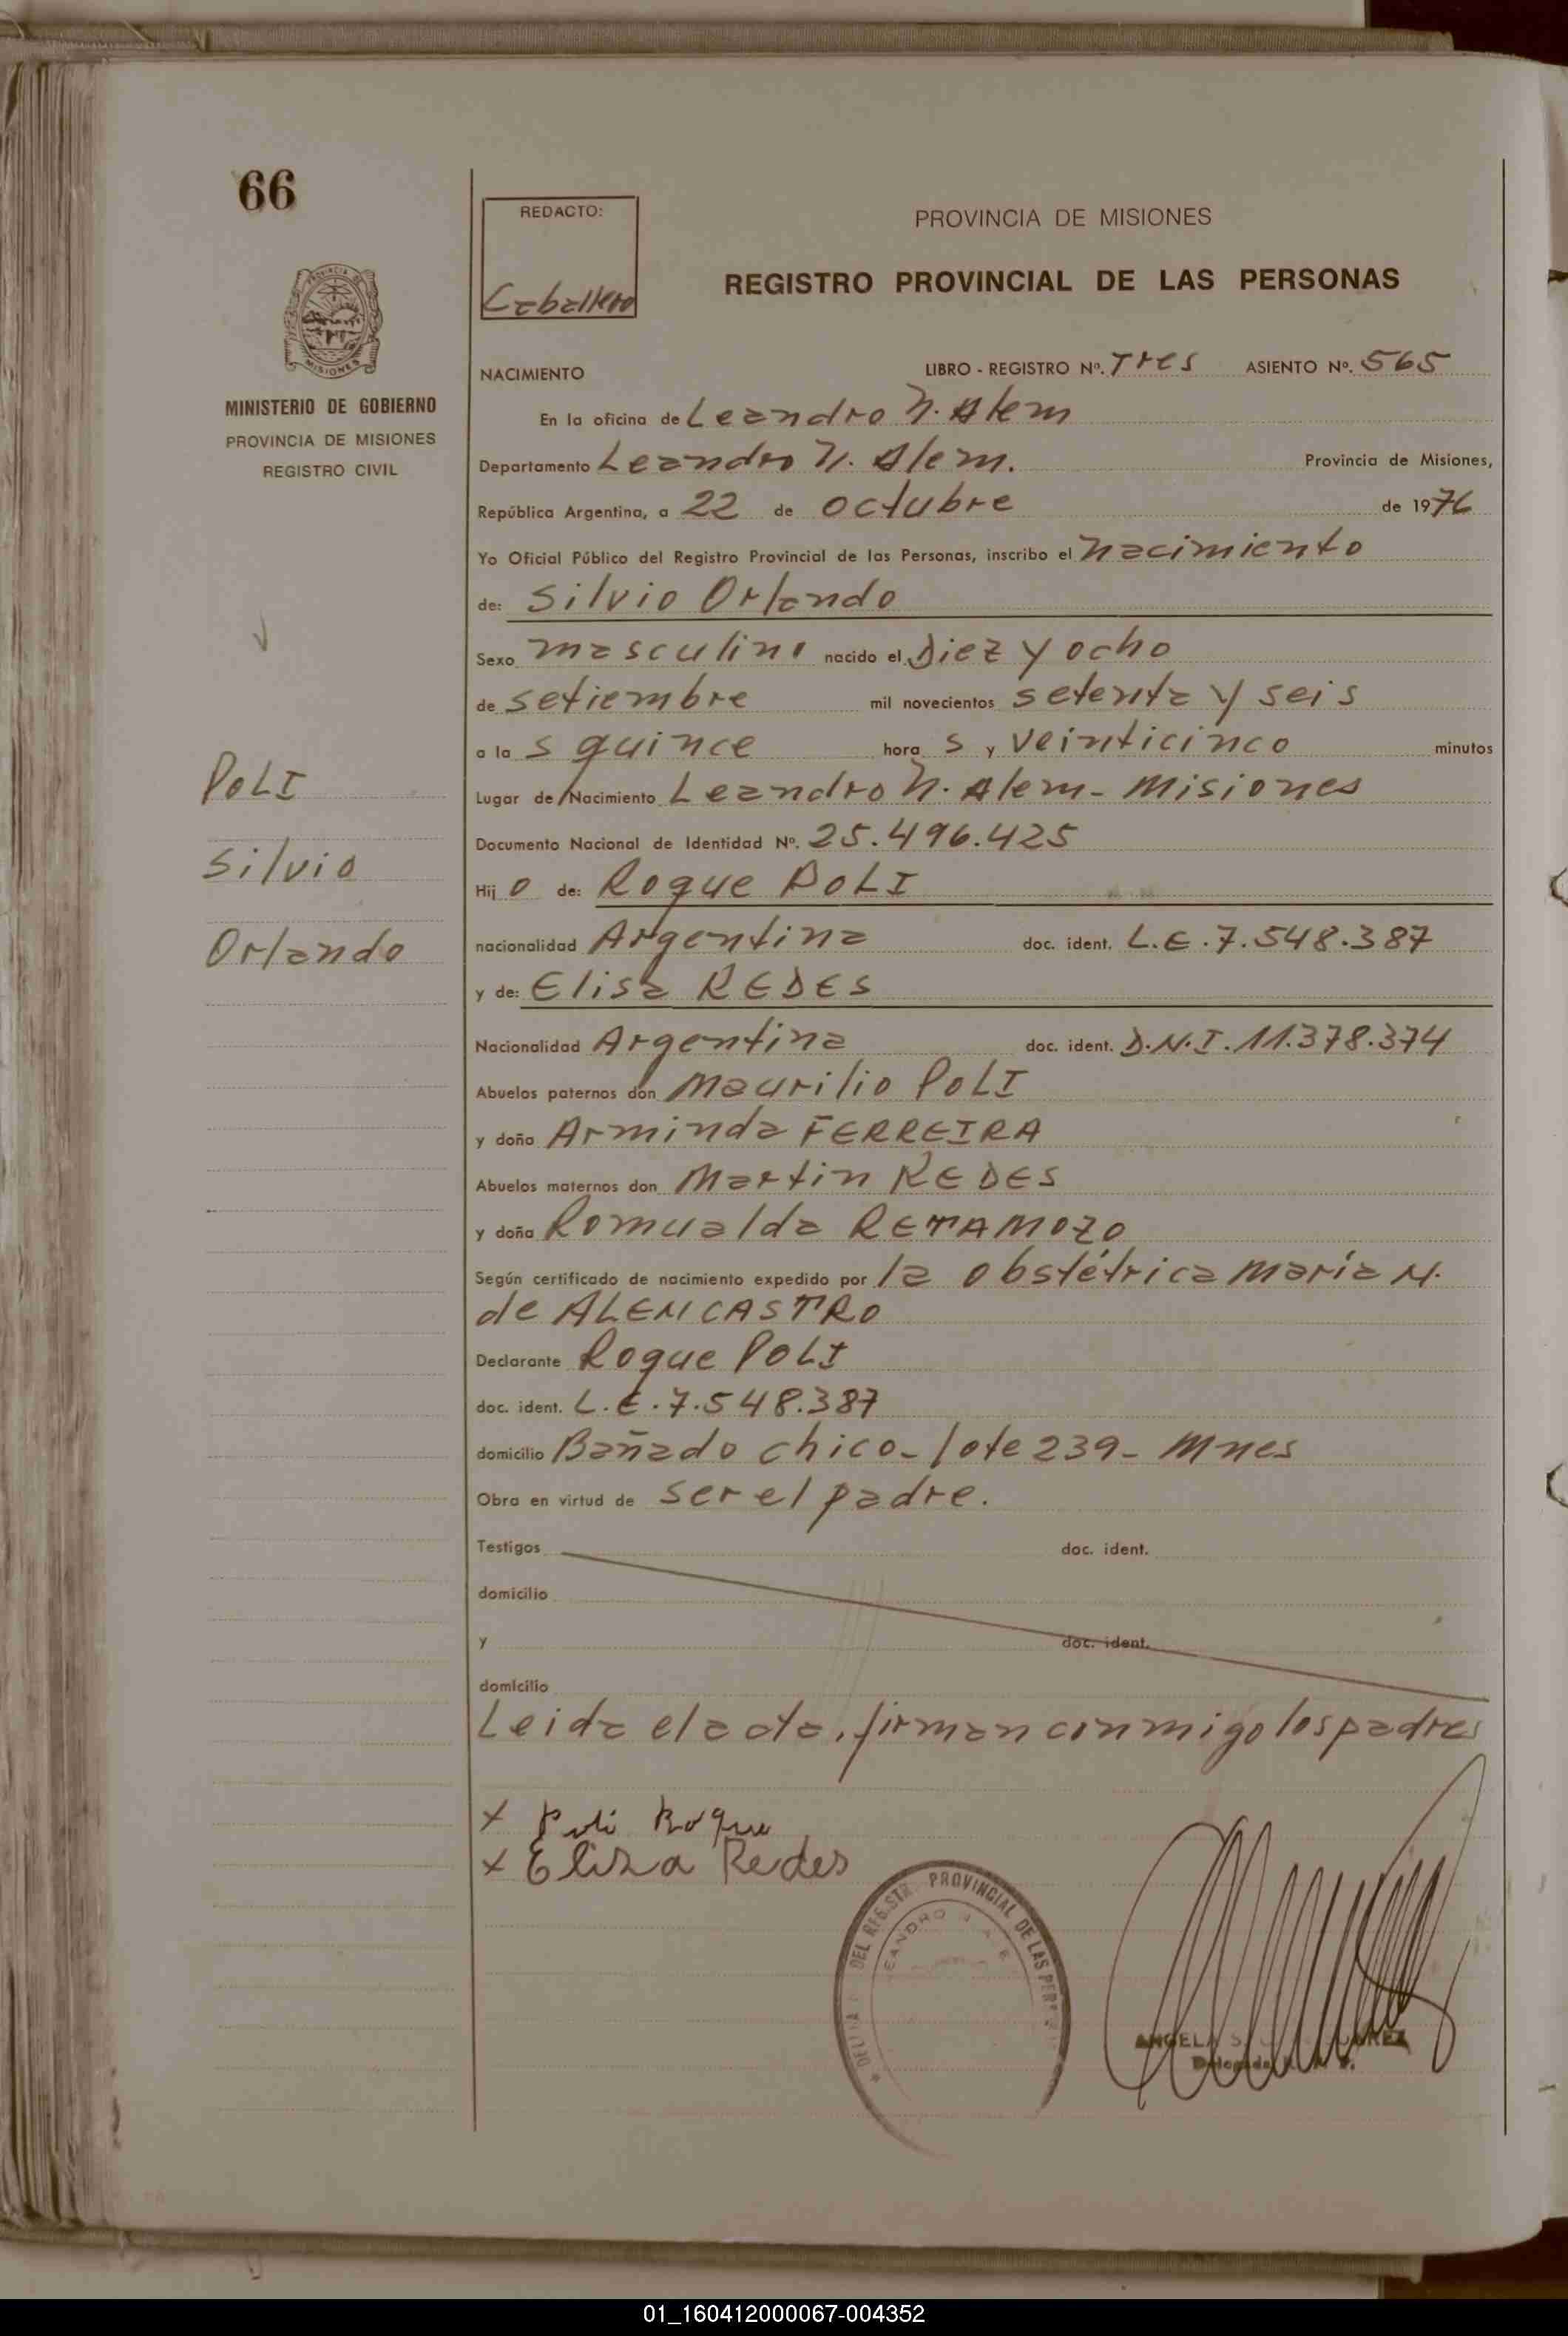 66
REDACTO:
Caballero
PROVINCIA DE MISIONES
REGISTRO PROVINCIAL DE LAS PERSONAS
MISIONES
MINISTERIO DE GOBIERNO
PROVINCIA DE MISIONES
REGISTRO CIVIL
NACIMIENTO LIBRO - REGISTRO Nº. Tres ASIENTO Nº. 565
En la oficina de Leandro N. Alem
Departamento Leandro N. Alem. Provincia de Misiones,
República Argentina, a 22 de octubre de 1976
Yo Oficial Público del Registro Provincial de las Personas, inscribo el nacimiento
de: Silvio Orlando
Sexo masculino nacido el Diez y ocho
de setiembre mil novecientos setenta y seis
a la s quince hora s y veinticinco minutos
Lugar de Nacimiento Leandro N. Alem - Misiones
Documento Nacional de Identidad Nº. 25.496.425
Hij o de: Roque POLI
nacionalidad Argentina doc. ident. L.E. 7.548.387
y de: Elisa REDES
Nacionalidad Argentina doc. ident. D.N.I. 11.378.374
Abuelos paternos don Maurilio POLI
y doña Arminda FERREIRA
Abuelos maternos don Martin REDES
y doña Romualda RETAMOZO
Según certificado de nacimiento expedido por la obstétrica María N.
de ALENCASTRO
Declarante Roque POLI
doc. ident. L.E. 7.548.387
domicilio Bañado chico - lote 239 - Mnes
Obra en virtud de ser el padre.
Testigos doc. ident.
domicilio
y doc. ident.
domicilio
Leida el acta, firman conmigo los padres
POLI
Silvio
Orlando
x Poli Roque
x Elisa Redes
DEL REGISTR PROVINCIAL DE LAS PER
LEANDRO N. ALE
ANGELA S. JUAREZ
Delegada
01_160412000067-004352